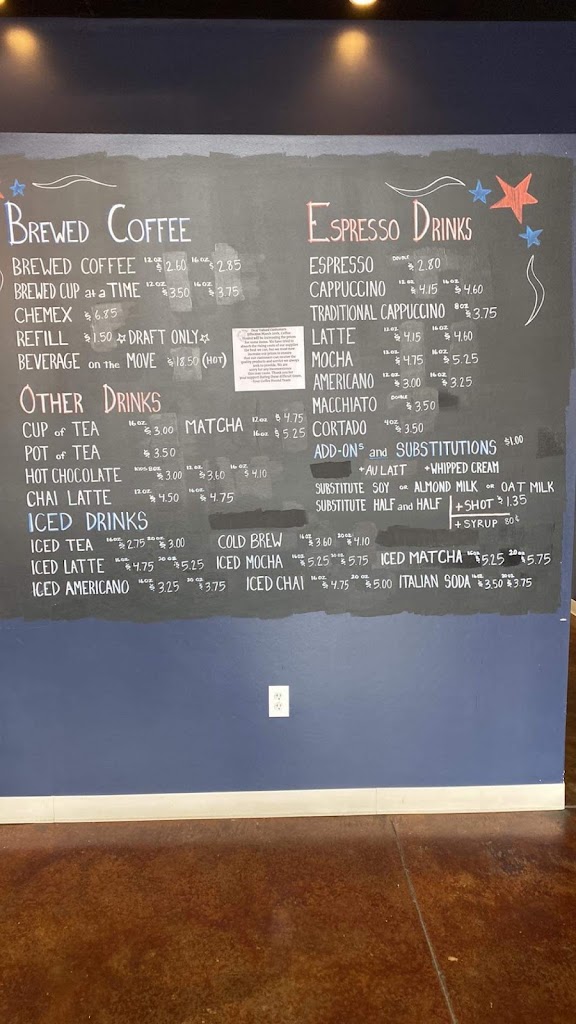 BREWED COFFEE
BREWED COFFEE 12 oz $2.60 16 oz $2.85
BREWED CUP at a TIME 12 oz $3.50 16 oz $3.75
CHEMEX $6.85
REFILL $1.50 ☆DRAFT ONLY☆
BEVERAGE on the MOVE $18.50 (HOT)
OTHER DRINKS
CUP of TEA 16 oz $3.00
POT of TEA $3.50
HOT CHOCOLATE KIDS 8oz $3.00 12 oz $3.60 16 oz $4.10
CHAI LATTE 12 oz $4.50 16 oz $4.75
MATCHA 12 oz $4.75
16 oz $5.25
ESPRESSO DRINKS
ESPRESSO DOUBLE $2.80
CAPPUCCINO 12 oz $4.15 16 oz $4.60
TRADITIONAL CAPPUCCINO 8 oz $3.75
LATTE 12 oz $4.15 16 oz $4.60
MOCHA 12 oz $4.75 16 oz $5.25
AMERICANO 12 oz $3.00 16 oz $3.25
MACCHIATO DOUBLE $3.50
CORTADO 4 oz $3.50
ADD-ONS and SUBSTITUTIONS $1.00
+AU LAIT +WHIPPED CREAM
SUBSTITUTE SOY or ALMOND MILK or OAT MILK
SUBSTITUTE HALF and HALF
+SHOT $1.35
+SYRUP 80¢
ICED DRINKS
ICED TEA 16 oz $2.75 20 oz $3.00
COLD BREW 16 oz $3.60 20 oz $4.10
ICED LATTE 16 oz $4.75 20 oz $5.25
ICED MOCHA 16 oz $5.25 20 oz $5.75
ICED MATCHA 16 oz $5.25 20 oz $5.75
ICED AMERICANO 16 oz $3.25 20 oz $3.75
ICED CHAI 16 oz $4.75 20 oz $5.00
ITALIAN SODA 16 oz $3.50 20 oz $3.75